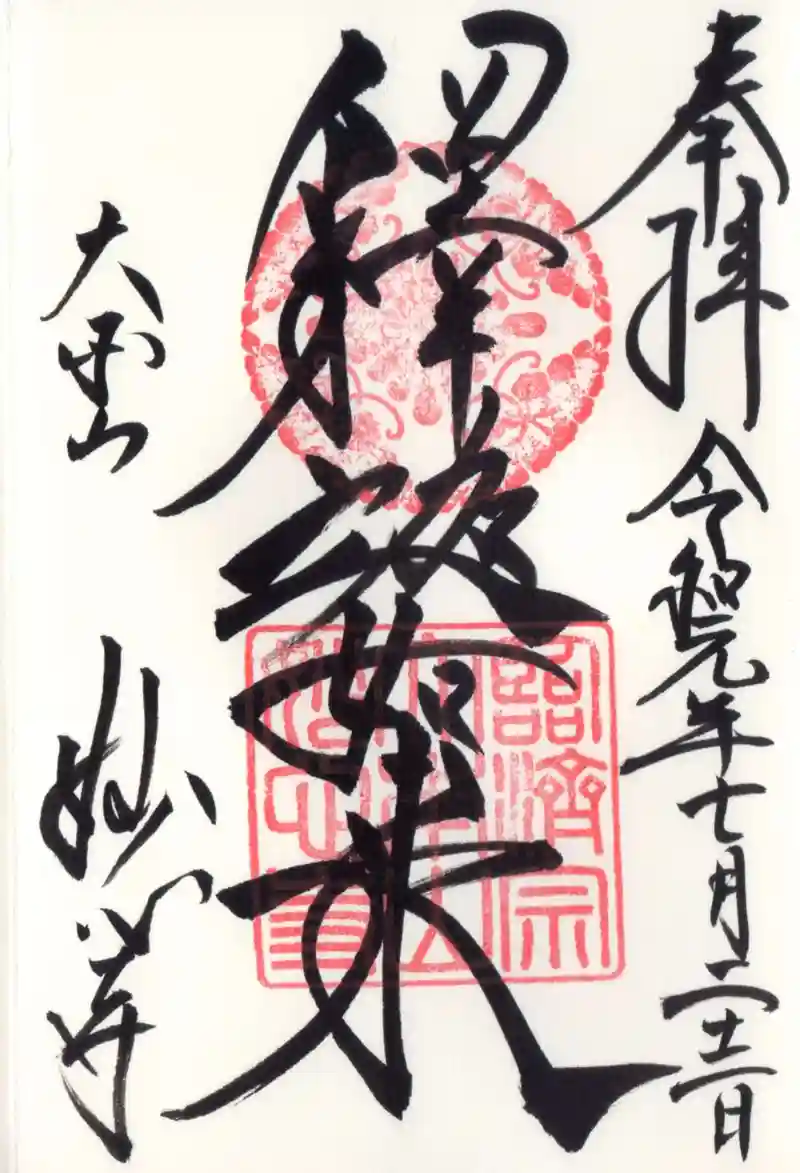 奉拝 令和元年七月二十二日
釋迦如来
大雲山 妙心寺
臨濟宗